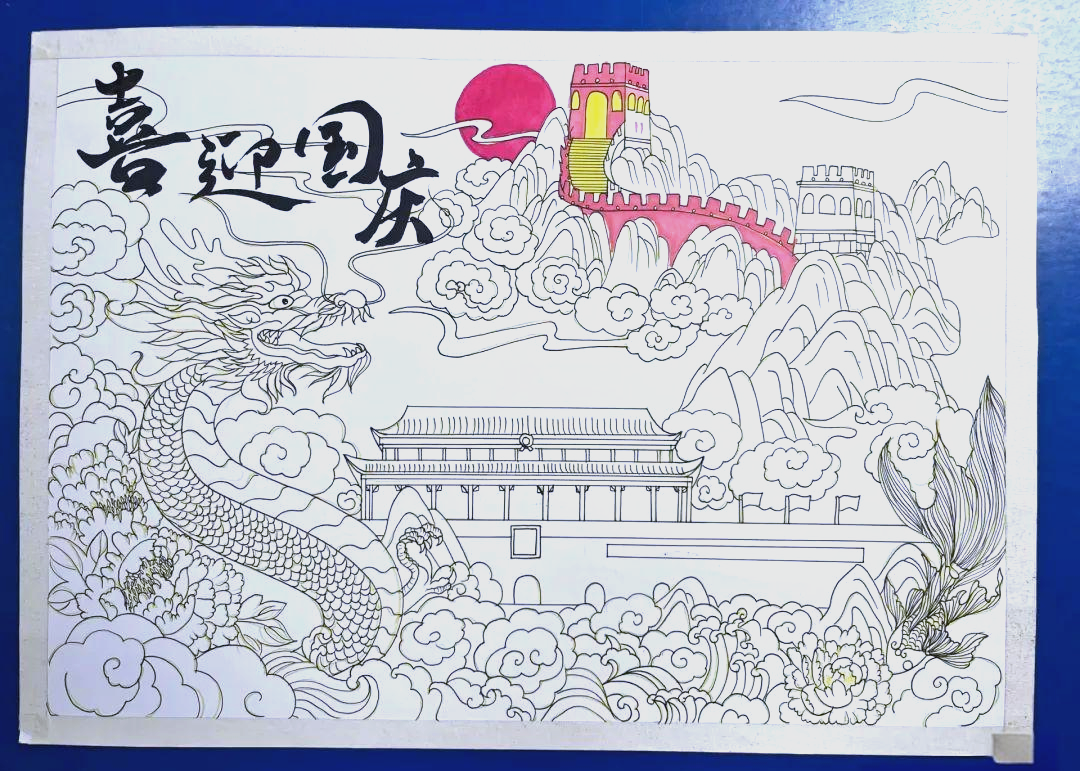 喜迎国庆